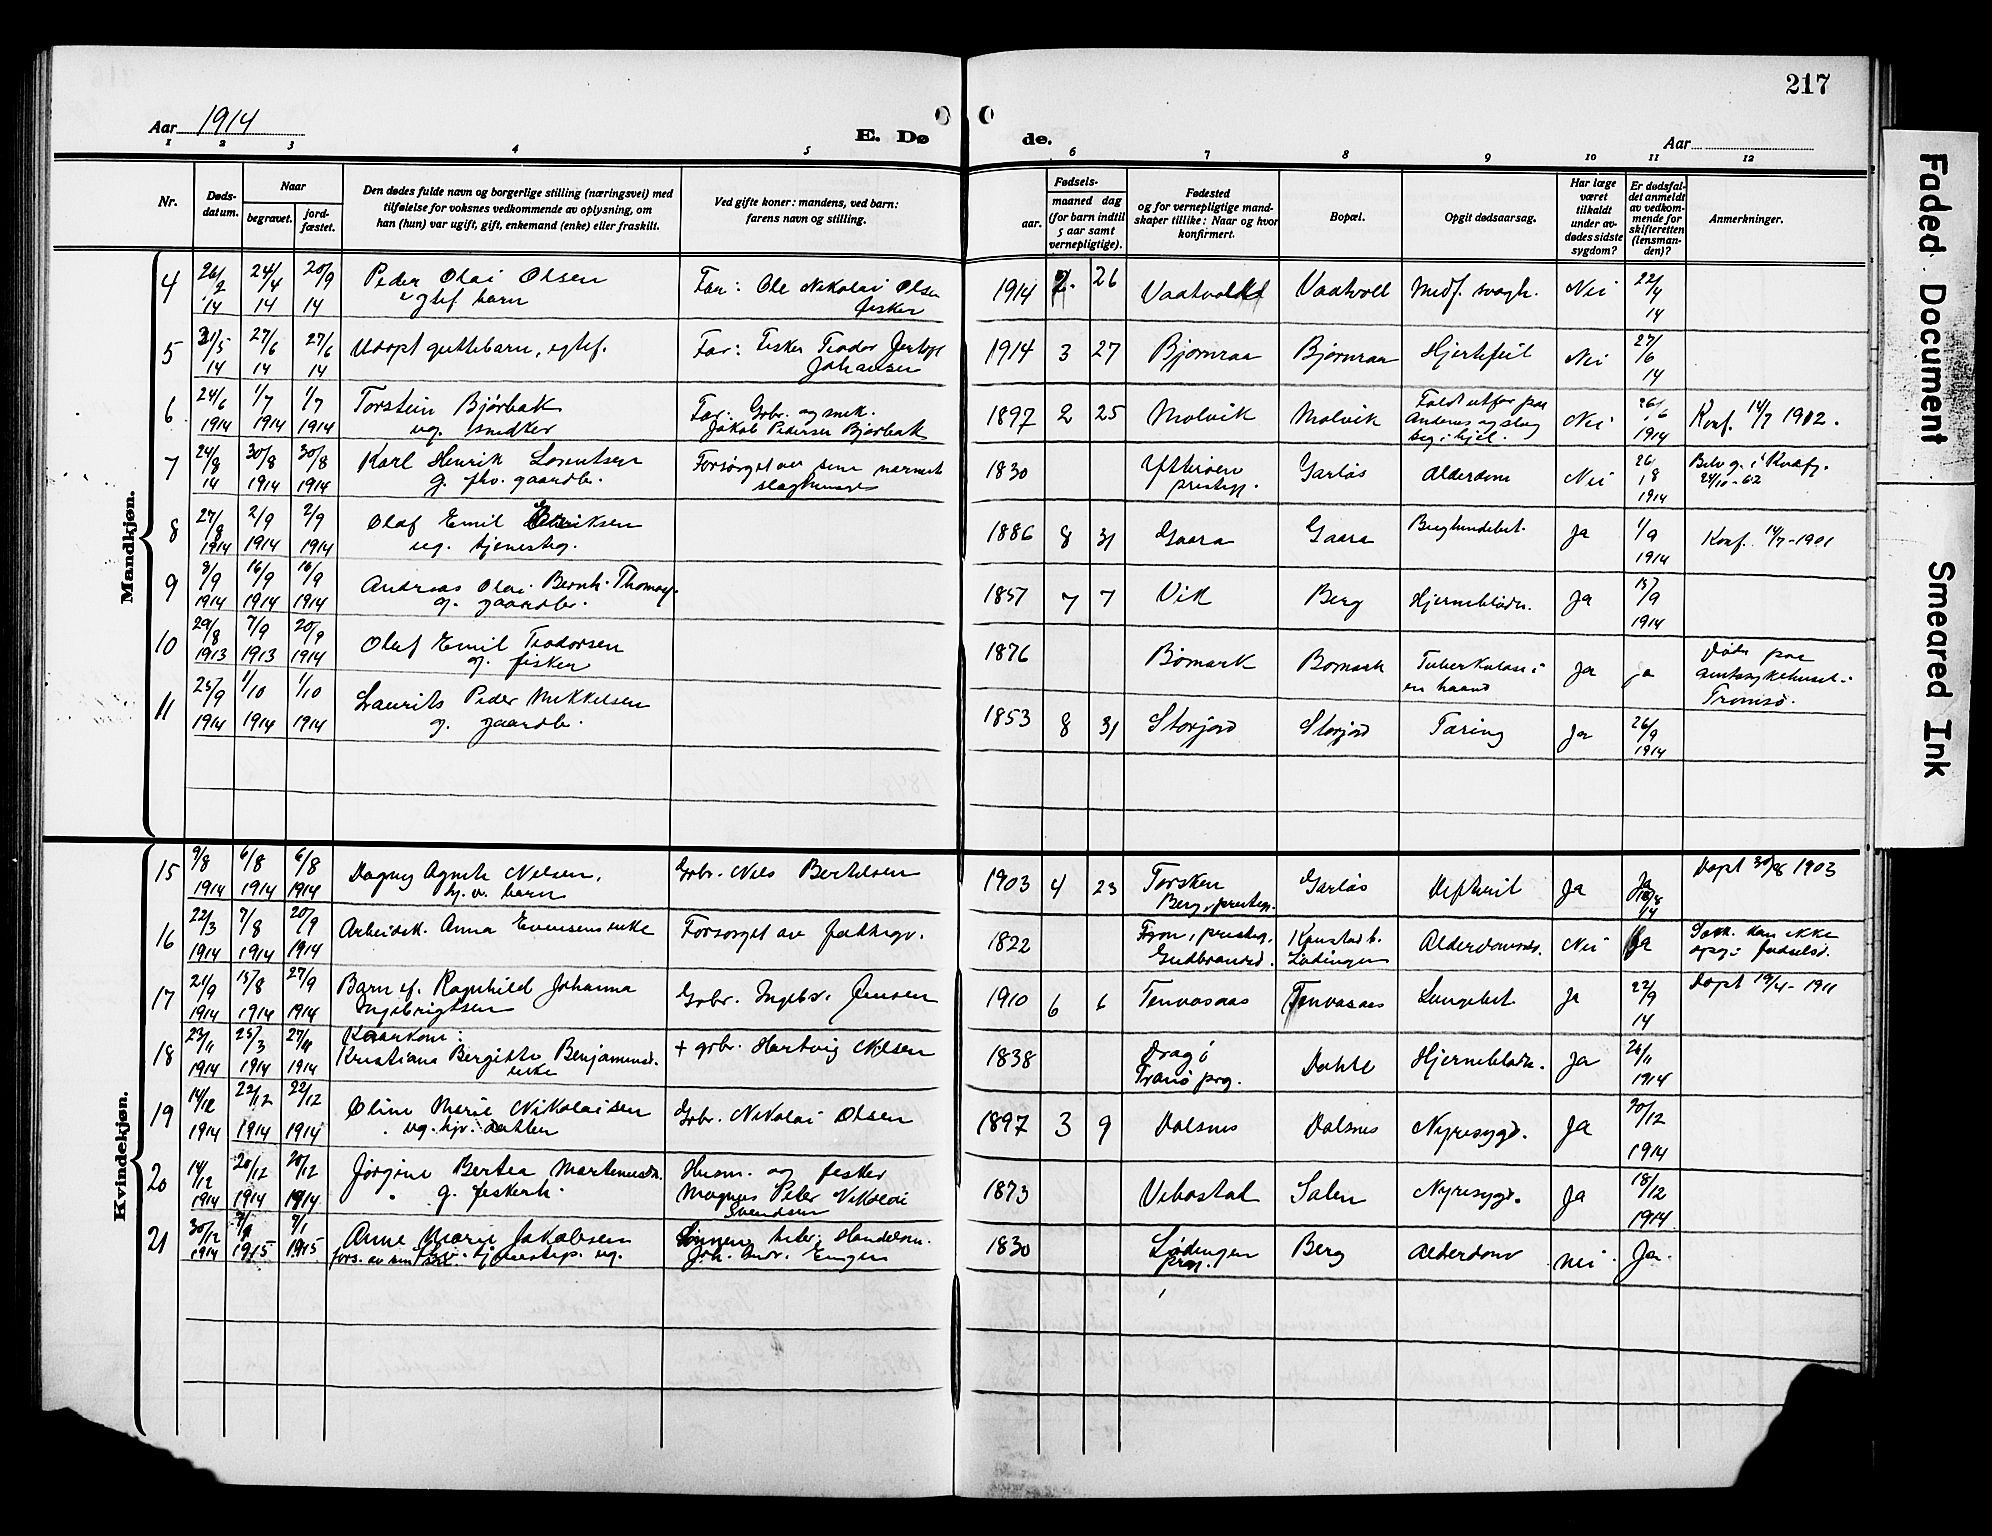 217
Aar 1914
E. Døde.
Aar
1 2 3 4 5 6 7 8 9 10 11 12
Nr.
Døds-
datum.
Naar
begravet.
jord-
fæstet.
Den dødes fulde navn og borgerlige stilling (næringsvei) med
tilføielse for voksnes vedkommende av oplysning, om
han (hun) var ugift, gift, enkemand (enke) eller fraskilt.
Ved gifte koner: mandens, ved barn:
farens navn og stilling.
Fødsels-
aar.
maaned dag
(for barn indtil
5 aar samt
vernepligtige).
Fødested
og for vernepligtige mand-
skaper tillike: Naar og hvor
konfirmert.
Bopæl.
Opgit dødsaarsag.
Har læge
været
tilkaldt
under av-
dødes sidste
sygdom?
Er dødsfal-
det anmeldt
av vedkom-
mende for
skifteretten
(lensman-
den)?
Anmerkninger.
Mandkjøn.
4 26/2 14 24/4 14 20/9 14 Peder Olai Olsen Far: Ole Nikolai Olsen 1914 2. 26 Vaatvold Vaatvoll Medf. svagh. Nei 22/4 14
egtef barn fisker
5 31/5 14 27/6 14 27/6 14 Udøpt guttebarn, egtef. Far: Fisker Teodor 1914 3 27 Bjørnraa Bjørnraa Hjertefeil Nei 27/6 14
Johansen
6 24/6 1914 1/7 1914 1/7 1914 Torstein Bjørbak Far: Gbr. og smk. 1897 2 25 Molvik Molvik Faldt utfor paa Nei 26/6 1914 Konf. 14/7 1912.
ug. snedker Jakob Pedersen Bjørbak Andenes og slog
seg ihjel.
7 24/8 14 30/8 1914 30/8 1914 Karl Henrik Lorentsen Forsørget av sine nermest 1830 Garløs Alderdom Nei 26/8 1914
g. fhv. gaardbr. prestegj. 24/10-62
8 27/8 1914 2/9 1914 2/9 1914 Olaf Emil Eriksen 1886 8 31 Gaara Gaara Ja 1/9 1914 Konf. 14/7-1901
ug. tjenesteg.
9 3/9 1914 16/9 1914 16/9 1914 Andreas Olai Bernh. Thomas. 1857 7 7 Vik Berg Hjerneblødn. Ja 15/9 1914
g. gaardbr.
10 29/8 1913 7/9 1913 20/9 1914 Oluf Emil Teodorsen 1876 Bømark Bømark Tuberkulose i Ja ja Døde paa
g. fisker en haand amtssykehuset i
Tromsø.
11 25/9 1914 1/10 1914 1/10 1914 Laurits Peder Mikkelsen 1853 8 31 Storjord Storjord Tæring Ja 26/9 1914
g. gaardbr.
Kvindekjøn.
15 9/8 1914 6/8 1914 6/8 1914 Dagny Agnete Nilsen, Gbr. Nils Bertelsen 1903 4 23 Torsken Garløs Difterit Ja Ja 10/8 14 Døpt 30/8 1903
hj. v. barn Berg, prestegj.
16 22/3 1914 7/8 1914 20/9 1914 Arbeidsk. Anna Evensen enke Forsørget av fattigv. 1822 Fron, prestegj. Alderdomssv. Nei Ja Sokn. kan ikke
Gudbrandsd. Lødingen opgi fødselsd.
17 21/9 1914 15/8 1914 27/9 1914 Barn ef. Ragnhild Johanna Gbr. Ingebr. Jensen 1910 6 6 Tenvasaas Tenvasaas Lungebet. Ja 22/9 14 Døpt 19/4-1911
Ingebrigtsen
18 23/11 1914 25/3 1914 27/11 1914 Kaarkone: + gbr. Hartvig Nilsen 1838 Dragø Dahle HjernebløDn. Ja 26/11 1914
Kristiana Bergitte Benjaminsd. Tranø prg.
enke
19 14/12 1914 22/12 1914 22/12 1914 Oline Marie Nikolaisen Gbr. Nikolai Olsen 1897 3 9 Dalsnes Dalsnes Nyresygd. Ja 20/12 1914
ug. hjv. datter
20 14/12 1914 20/12 1914 20/12 1914 Jørgine Bertea Martinusdr. Husm. og fisker 1873 Vebostad Salen Nyresygd. Ja 18/12 1914
g. fiskerh. Magnus Peter Nikolai
Svendsen
21 30/12 1914 7/1 1915 7/1 1915 Anne Marie Jakobsen Sønnen Handelsm. 1830 Lødingen Berg Alderdom Nei Ja.
fors. av sin tjenestep. ug. Joh. Andr. Engen prg.
Faded Document
Smeared Ink